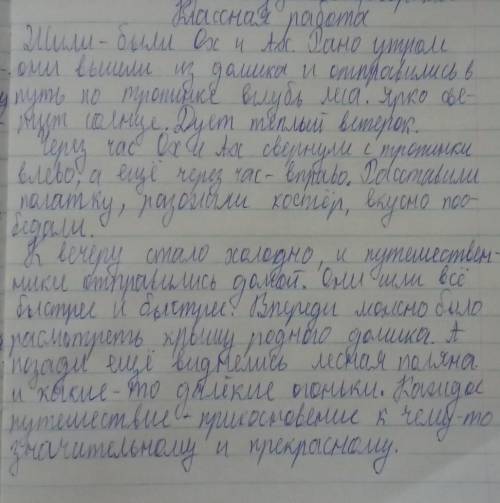 Классная работа
Жили-были Ох и Ах. Рано утром
они вышли из домика и отправились в
путь по тропинке вглубь леса. Ярко све-
тит солнце. Дует тёплый ветерок.
Через час Ох и Ах свернули с тропинки
влево, а ещё через час - вправо. Расставили
палатку, разожгли костёр, вкусно поо-
бедали.
К вечеру стало холодно, и путешествен-
ники отправились домой. Они шли всё
быстрее и быстрее. Впереди можно было
расмотреть крышу родного домика. А
позади ещё виднелись лесная поляна
и какие-то далёкие огоньки. Каждое
путешествие - прикосновение к чему-то
значительному и прекрасному.